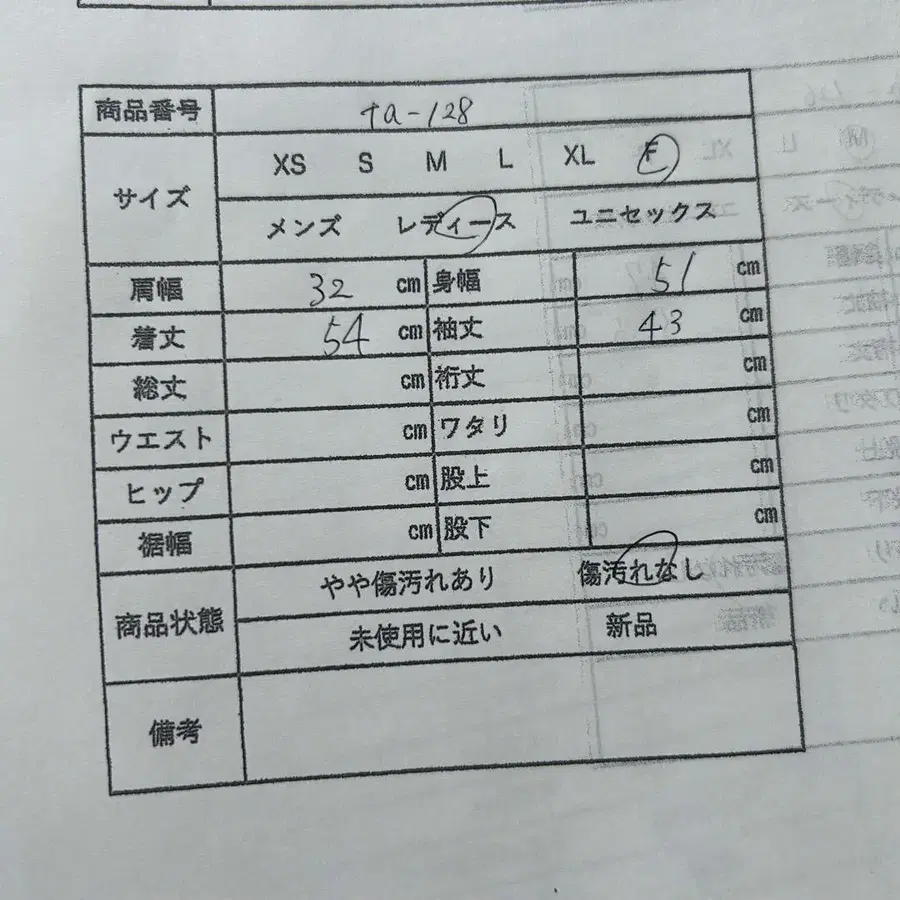 商品番号 ta-128
サイズ
XS S M L XL F
メンズ レディース ユニセックス
肩幅 32 cm 身幅 51 cm
着丈 54 cm 袖丈 43 cm
総丈 cm 裄丈 cm
ウエスト cm ワタリ cm
ヒップ cm 股上 cm
裾幅 cm 股下 cm
商品状態
やや傷汚れあり 傷汚れなし
未使用に近い 新品
備考